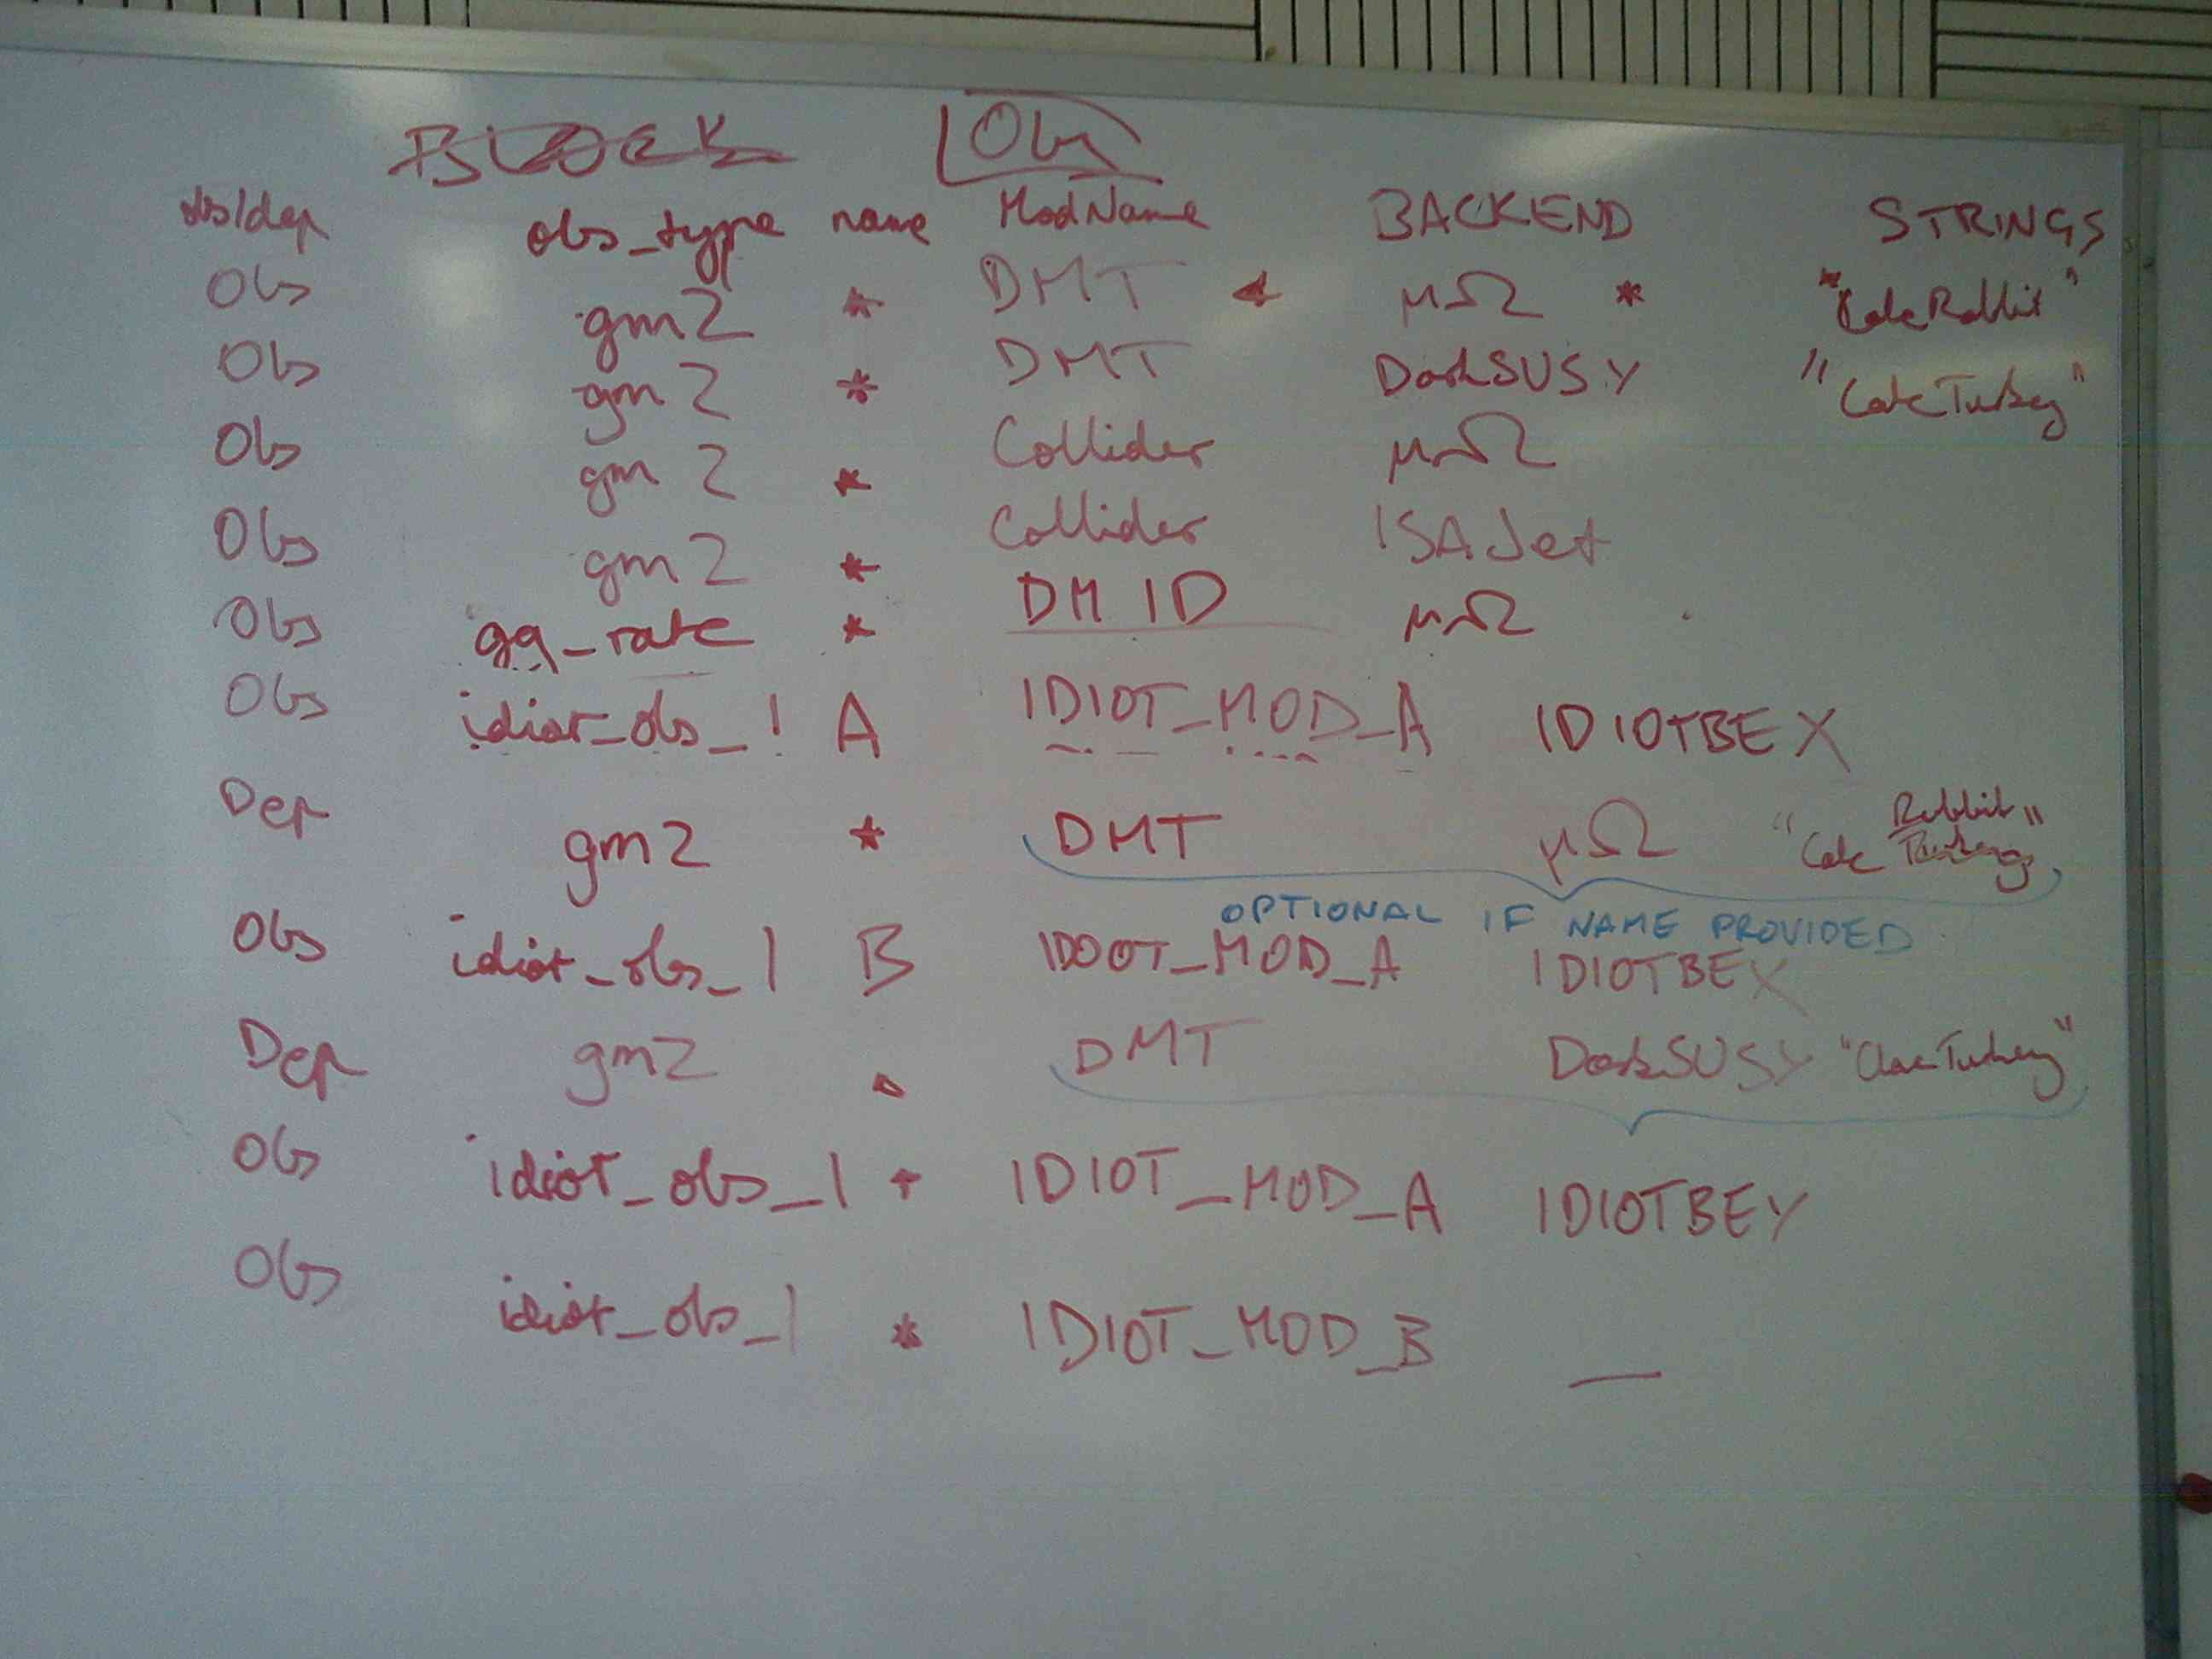 BLOCK Obs
obs/dep obs_type name ModName BACKEND STRINGS
Obs gm2 * DMT * μΩ * "CalcRabbit"
Obs gm2 * DMT DarkSUSY "CalcTurkey"
Obs gm2 * Collider μΩ
Obs gm2 * Collider ISAJet
Obs gq_rate * DM ID μΩ
Obs idiot_obs_1 A IDIOT_MOD_A IDIOTBEX
Dep gm2 * DMT μΩ "Calc Turkey Rabbit"
OPTIONAL IF NAME PROVIDED
Obs idiot_obs_1 B IDOOT_MOD_A IDIOTBEX
Dep gm2 * DMT DarkSUSY "ClacTurkey"
Obs idiot_obs_1 * IDIOT_MOD_A IDIOTBEY
Obs idiot_obs_1 * IDIOT_MOD_B —